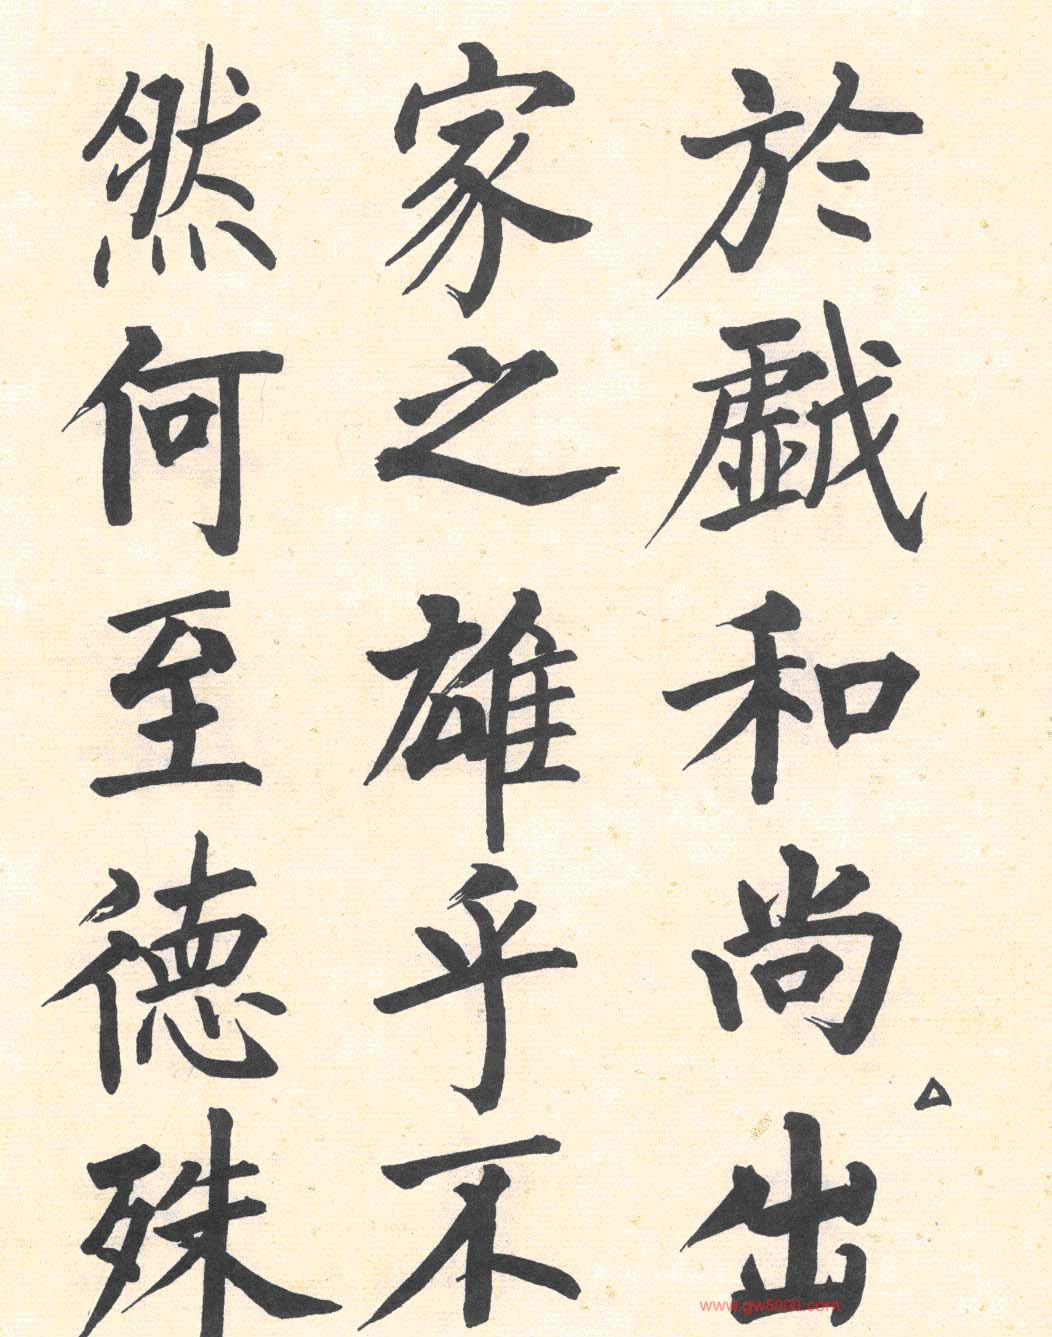 於戱和尚出
家之雄乎不
然何至德殊
www.gw5000.com